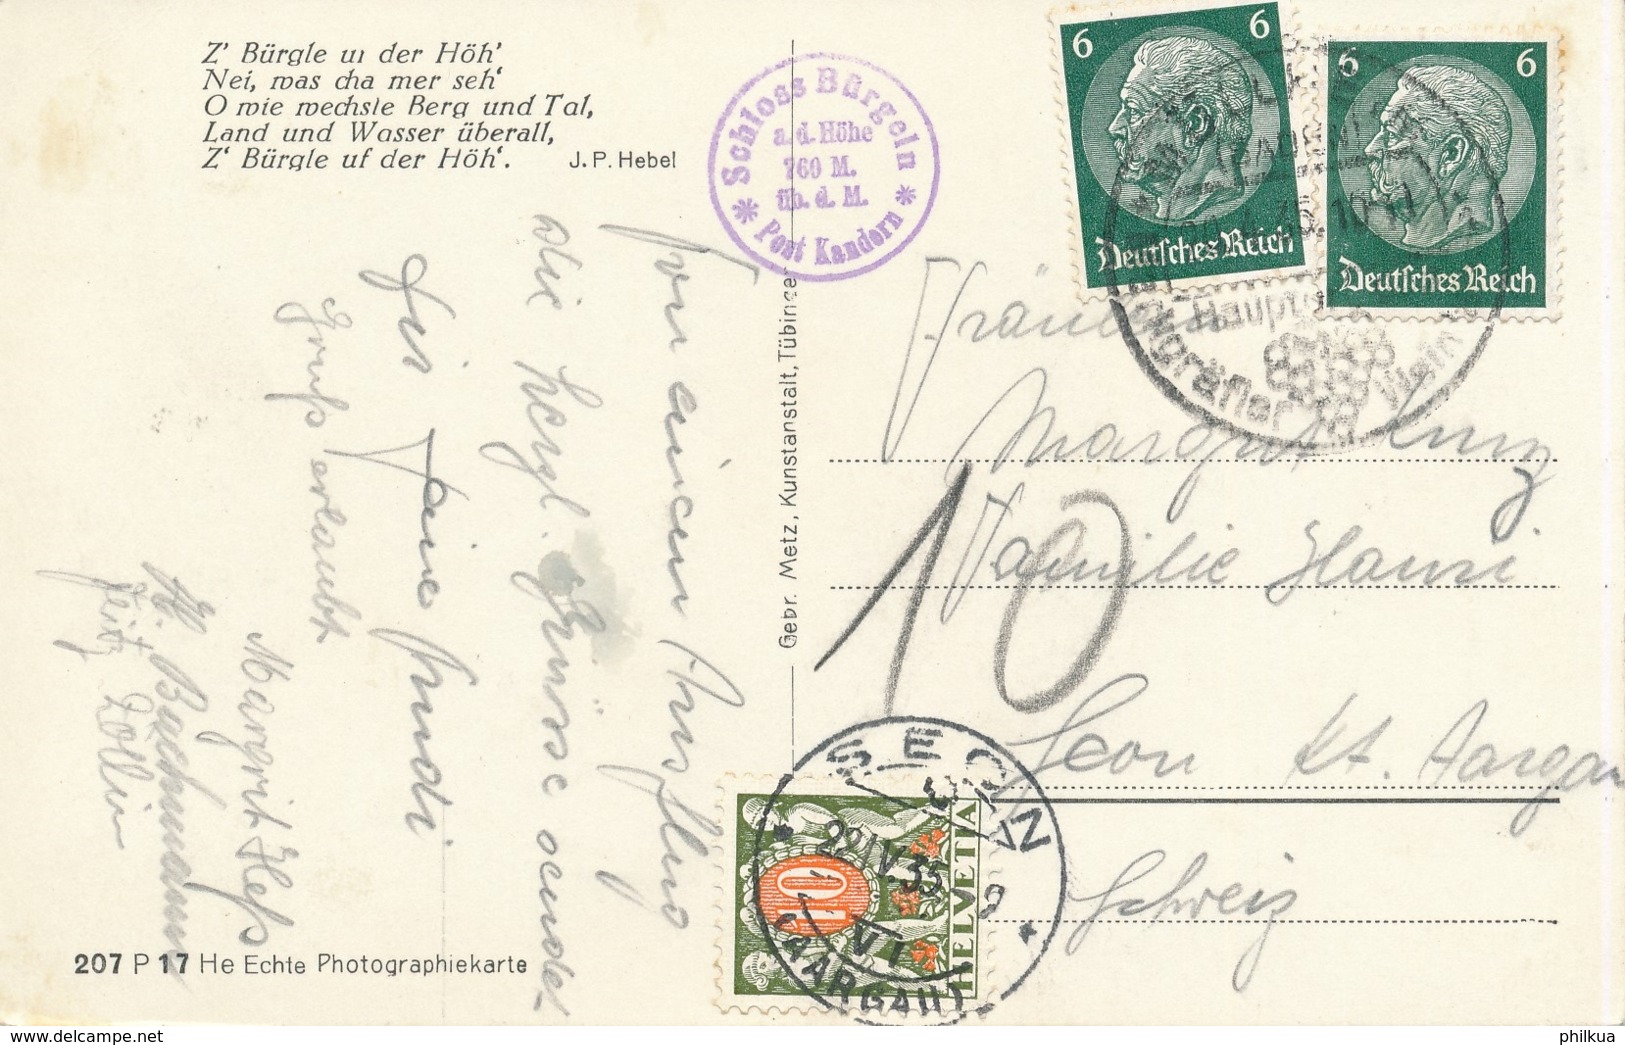 Z' Bürgle uf der Höh'
Nei, was cha mer seh'
O wie wechsle Berg und Tal,
Land und Wasser überall,
Z' Bürgle uf der Höh'.
J.P. Hebel
* Schloss Bürgeln *
a.d. Höhe
760 M.
üb. d. M.
Post Kandern
6 6
Deutsches Reich
6 6
Deutsches Reich
Fräulein
Margrit Kunz
Familie Hauri
Seon Kt. Aargau
Schweiz
10
Von einem Ausflug
die herzl. Grüsse sendet
Gruss erlaubt
Margrit Hess
H. Bachmann
Gebr. Metz, Kunstanstalt, Tübingen
207 P 17 He Echte Photographiekarte
10
HELVETIA
SEON
22.IV.35
VI
(AARGAU)
philkua